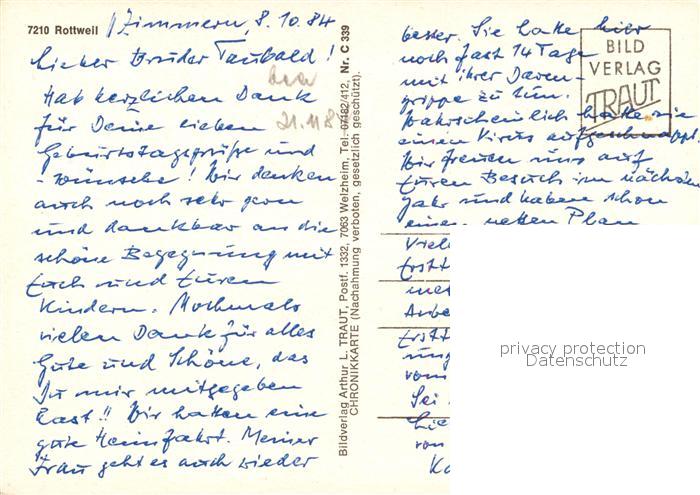 7210 Rottweil
Zimmern, 8.10.84
Lieber Bruder Taubald!
Hab herzlichen Dank
für Deine lieben
Geburtstagsgrüße und
-wünsche! Wir denken
auch noch sehr gern
und dankbar an die
schöne Begegnung mit
Euch und Euren
Kindern. Nochmals
vielen Dank für alles
Gute und Schöne, das
Du mir mitgegeben
hast!! Wir hatten eine
gute Heimfahrt. Meiner
Frau geht es auch wieder
21.11.84
Bildverlag Arthur L. TRAUT, Postf. 1332, 7063 Welzheim, Tel. 07182/412, Nr. C 339
CHRONIKKARTE (Nachahmung verboten, gesetzlich geschützt).
besser. Sie hatte hier
noch fast 14 Tage
mit ihrer Darm-
grippe zu tun.
Wahrscheinlich hatte sie
einen Virus aufgeschnappt.
Wir freuen uns auf
Euren Besuch im nächsten
Jahr und haben schon
einen netten Plan
Viel
Erstt
Erstt
ung
vom
Sei
von
BILD
VERLAG
TRAUT
privacy protection
Datenschutz